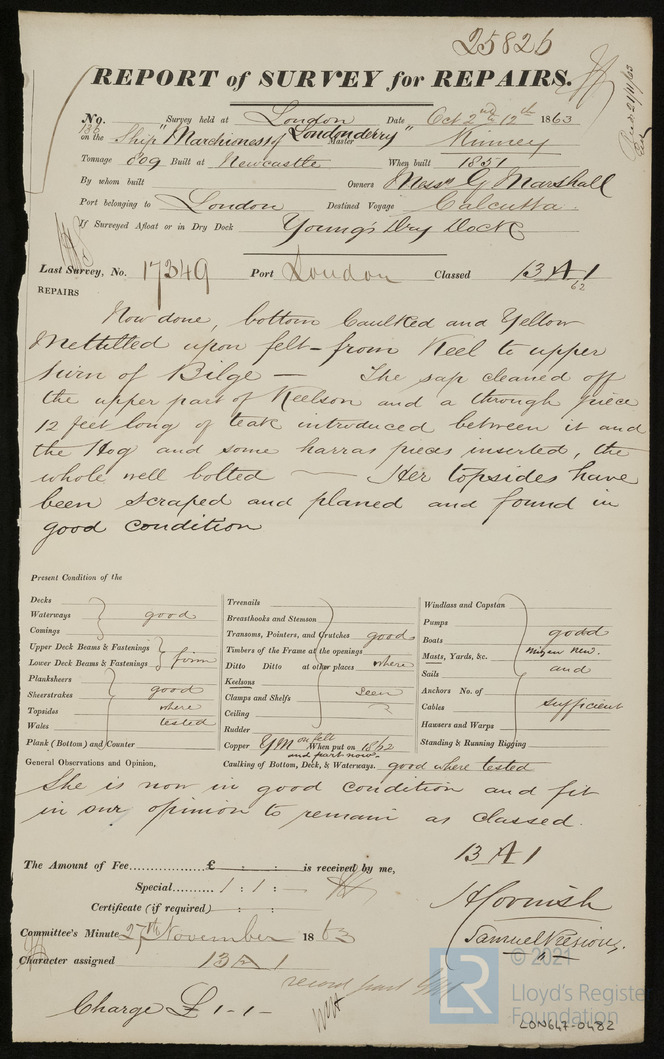 25826
REPORT of SURVEY for REPAIRS.
No. 136 Survey held at London Date Oct 2nd & 12th 1863
on the Ship "Marchioness of Londonderry" Master Kinney
Tonnage 809 Built at Newcastle When built 1851
By whom built Owners Messrs G Marshall
Port belonging to London Destined Voyage Calcutta.
If Surveyed Afloat or in Dry Dock Young's Dry Dock
Last Survey, No. 17349 Port London Classed 13 A 1
62
REPAIRS
Now done, bottom Caulked and Yellow
Mettilled upon felt - from Keel to upper
turn of Bilge — The sap cleaned off
the upper part of Keelson and a through piece
12 feet long of teak introduced between it and
the Hog and some harras pieces inserted, the
whole well bolted — Her topsides have
been scraped and planed and found in
good condition
Present Condition of the
Decks
Waterways good
Comings
Upper Deck Beams & Fastenings
Lower Deck Beams & Fastenings firm
Planksheers
Sheerstrakes good
Topsides where
Wales tested
Plank (Bottom) and Counter
Treenails
Breasthooks and Stemson
Transoms, Pointers, and Crutches good
Timbers of the Frame at the openings
Ditto Ditto at other places where
Keelsons
Clamps and Shelfs seen
Ceiling
Rudder
Copper YM on felt When put on 18/62
and part now
Caulking of Bottom, Deck, & Waterways. good where tested
Windlass and Capstan
Pumps
Boats good
Masts, Yards, &c. Mizen New.
Sails and
Anchors No. of
Cables sufficient
Hawsers and Warps
Standing & Running Rigging
General Observations and Opinion,
She is now in good condition and fit
in our opinion to remain as classed.
13 A 1
The Amount of Fee £ : : is received by me,
Special 1 : 1 : —
Certificate (if required) : :
H Cornish
Samuel Presious
Committee's Minute 27th November 1863
Character assigned 13 A 1
record part YM
Charge £ 1 - 1 -
© 2021
LR
Lloyd's Register
Foundation
LON647-0482